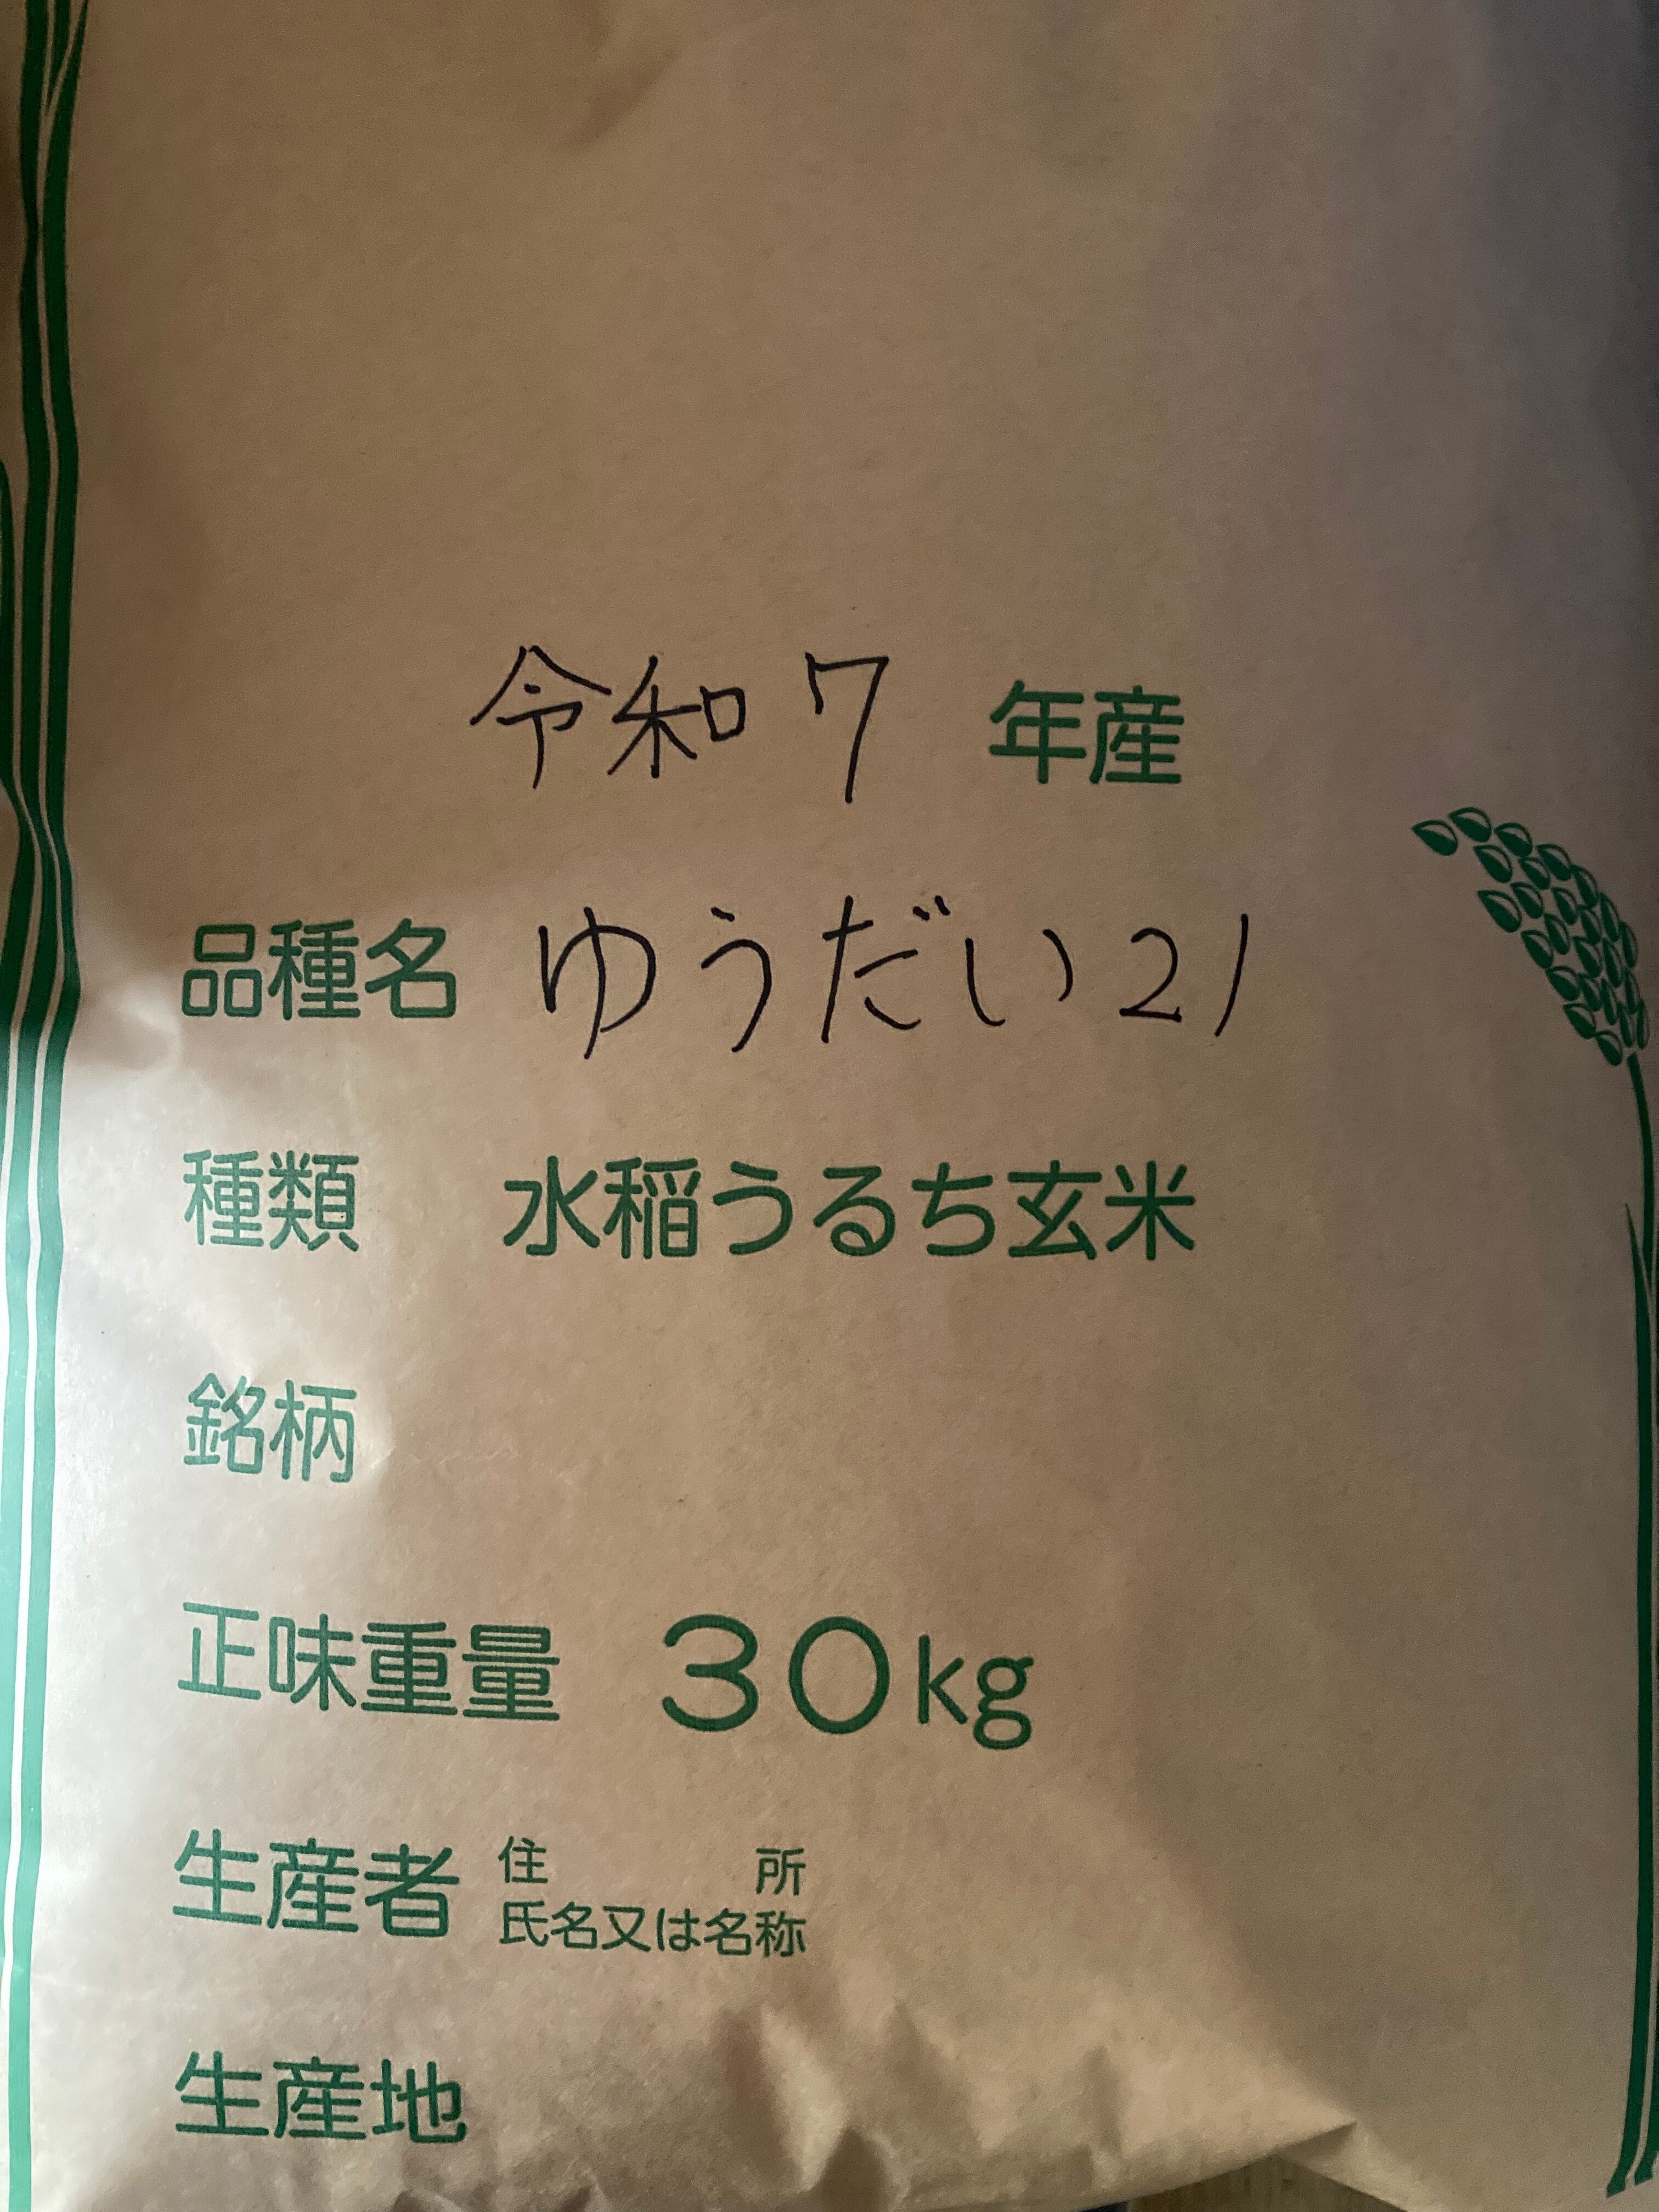 令和7 年産
品種名 ゆうだい21
種類 水稲うるち玄米
銘柄
正味重量 30kg
生産者 住所
氏名又は名称
生産地